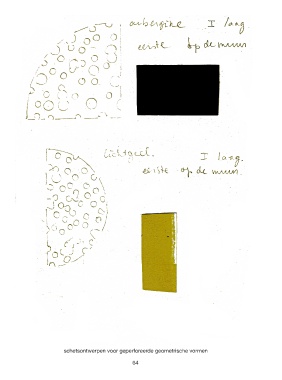 aubergine I laag.
eerste op de muur
lichtgeel. I laag.
eerste op de muur.
schetsontwerpen voor geperforeerde geometrische vormen
64